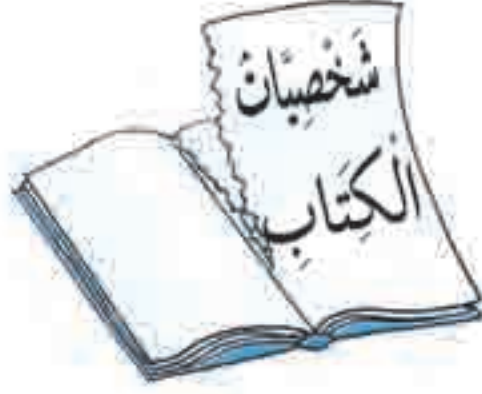 شَخْصِيَّاتُ
الْكِتَابِ